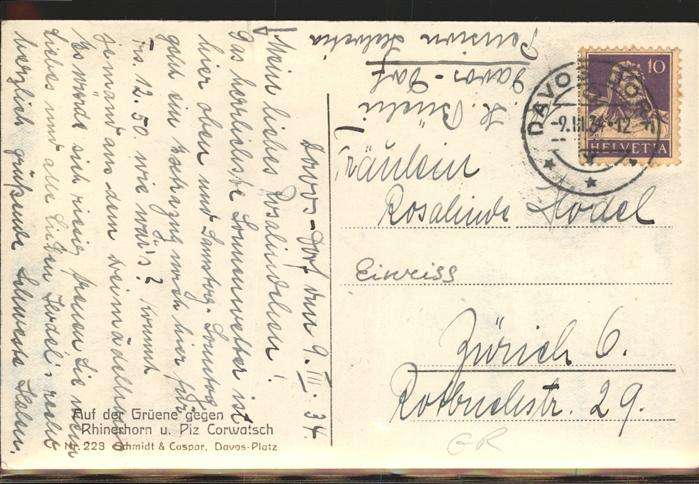 Davos-Dorf den 9. III. 34.
Mein liebes Rosalindchen!
Das herrlichste Sonnenwetter ist
hier oben und Samstag-Sonntag
geht ein Extrazug nach hier für
Frs. 12.50. wie wär's? kommt
jemand aus dem
Es würde sich riesig freuen Sie
liebes und alle lieben Hodel's recht
herzlich grüssende Schwester
Pension Helvetia
Davos-Dorf
DAVOS DORF
-9.III.34.-12
10
HELVETIA
Fräulein
Rosalinde Hodel
Einriss
Zürich 6.
Rotbuchstr. 29.
GR
Auf der Grüene gegen
Rhinerhorn u. Piz Corwatsch
Nr. 223 Schmidt & Caspar, Davos-Platz